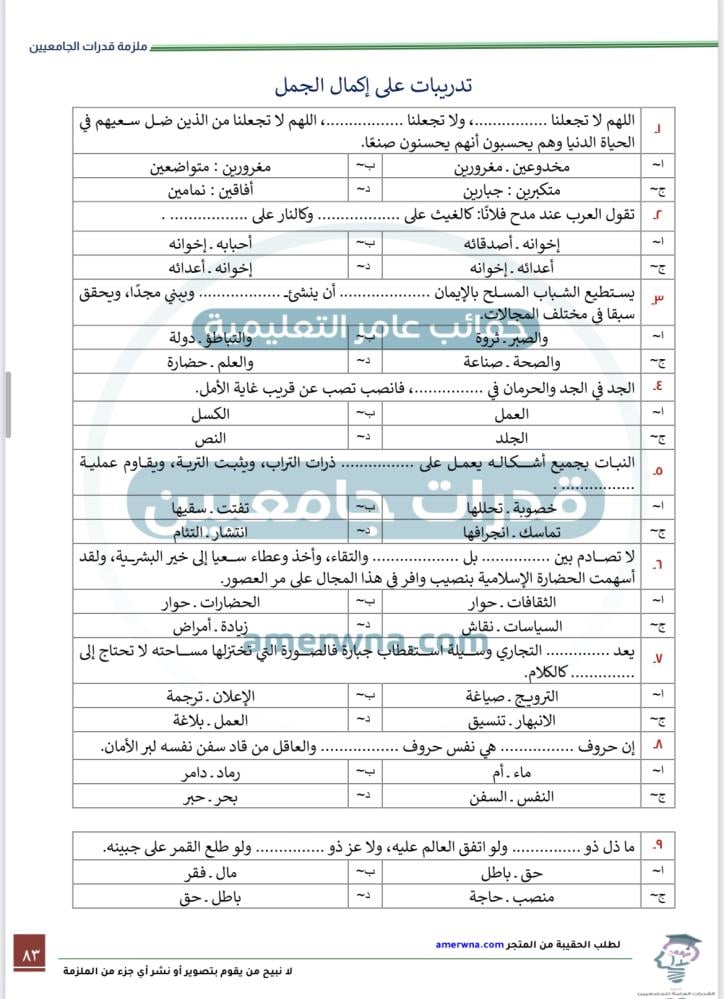 ملزمة قدرات الجامعيين
تدريبات على إكمال الجمل
١ـ اللهم لا تجعلنا ................، ولا تجعلنا ................، اللهم لا تجعلنا من الذين ضل سعيهم في
الحياة الدنيا وهم يحسبون أنهم يحسنون صنعًا.
ا~ مخدوعين ـ مغرورين ب~ مغرورين : متواضعين
ج~ متكبرين : جبارين د~ أفاقين : نمامين
٢ـ تقول العرب عند مدح فلانًا: كالغيث على ................. وكالنار على ................ .
ا~ إخوانه ـ أصدقائه ب~ أحبابه ـ إخوانه
ج~ أعدائه ـ إخوانه د~ إخوانه ـ أعدائه
٣ـ يستطيع الشباب المسلح بالإيمان ................... أن ينشئـ ................. ويبني مجدًا، ويحقق
سبقا في مختلف المجالات.
حقائب عامر التعليمية
ا~ والصبر ـ ثروة ب~ والتباطؤ ـ دولة
ج~ والصحة ـ صناعة د~ والعلم ـ حضارة
٤ـ الجد في الجد والحرمان في ..............، فانصب تصب عن قريب غاية الأمل.
ا~ العمل ب~ الكسل
ج~ الجلد د~ النص
٥ـ النبات بجميع أشكاله يعمل على ............... ذرات التراب، ويثبت التربة، ويقاوم عملية
............... .
قدرات جامعيين
ا~ خصوبة ـ تحللها ب~ تفتت ـ سقيها
ج~ تماسك ـ انجرافها د~ انتشار ـ التئام
٦ـ لا تصادم بين .............. بل .................. والتقاء، وأخذ وعطاء سعيا إلى خير البشرية، ولقد
أسهمت الحضارة الإسلامية بنصيب وافر في هذا المجال على مر العصور.
ا~ الثقافات ـ حوار ب~ الحضارات ـ حوار
ج~ السياسات ـ نقاش د~ زيادة ـ أمراض
amerwna.com
٧ـ يعد ............. التجاري وسيلة استقطاب جبارة فالصورة التي تختزلها مساحته لا تحتاج إلى
............. كالكلام.
ا~ الترويج ـ صياغة ب~ الإعلان ـ ترجمة
ج~ الانبهار ـ تنسيق د~ العمل ـ بلاغة
٨ـ إن حروف ............... هي نفس حروف ................ والعاقل من قاد سفن نفسه لبر الأمان.
ا~ ماء ـ أم ب~ رماد ـ دامر
ج~ النفس ـ السفن د~ بحر ـ حبر
٩ـ ما ذل ذو .............. ولو اتفق العالم عليه، ولا عز ذو .............. ولو طلع القمر على جبينه.
ا~ حق ـ باطل ب~ مال ـ فقر
ج~ منصب ـ حاجة د~ باطل ـ حق
لطلب الحقيبة من المتجر amerwna.com
لا نبيح من يقوم بتصوير أو نشر أي جزء من الملزمة
٨٣